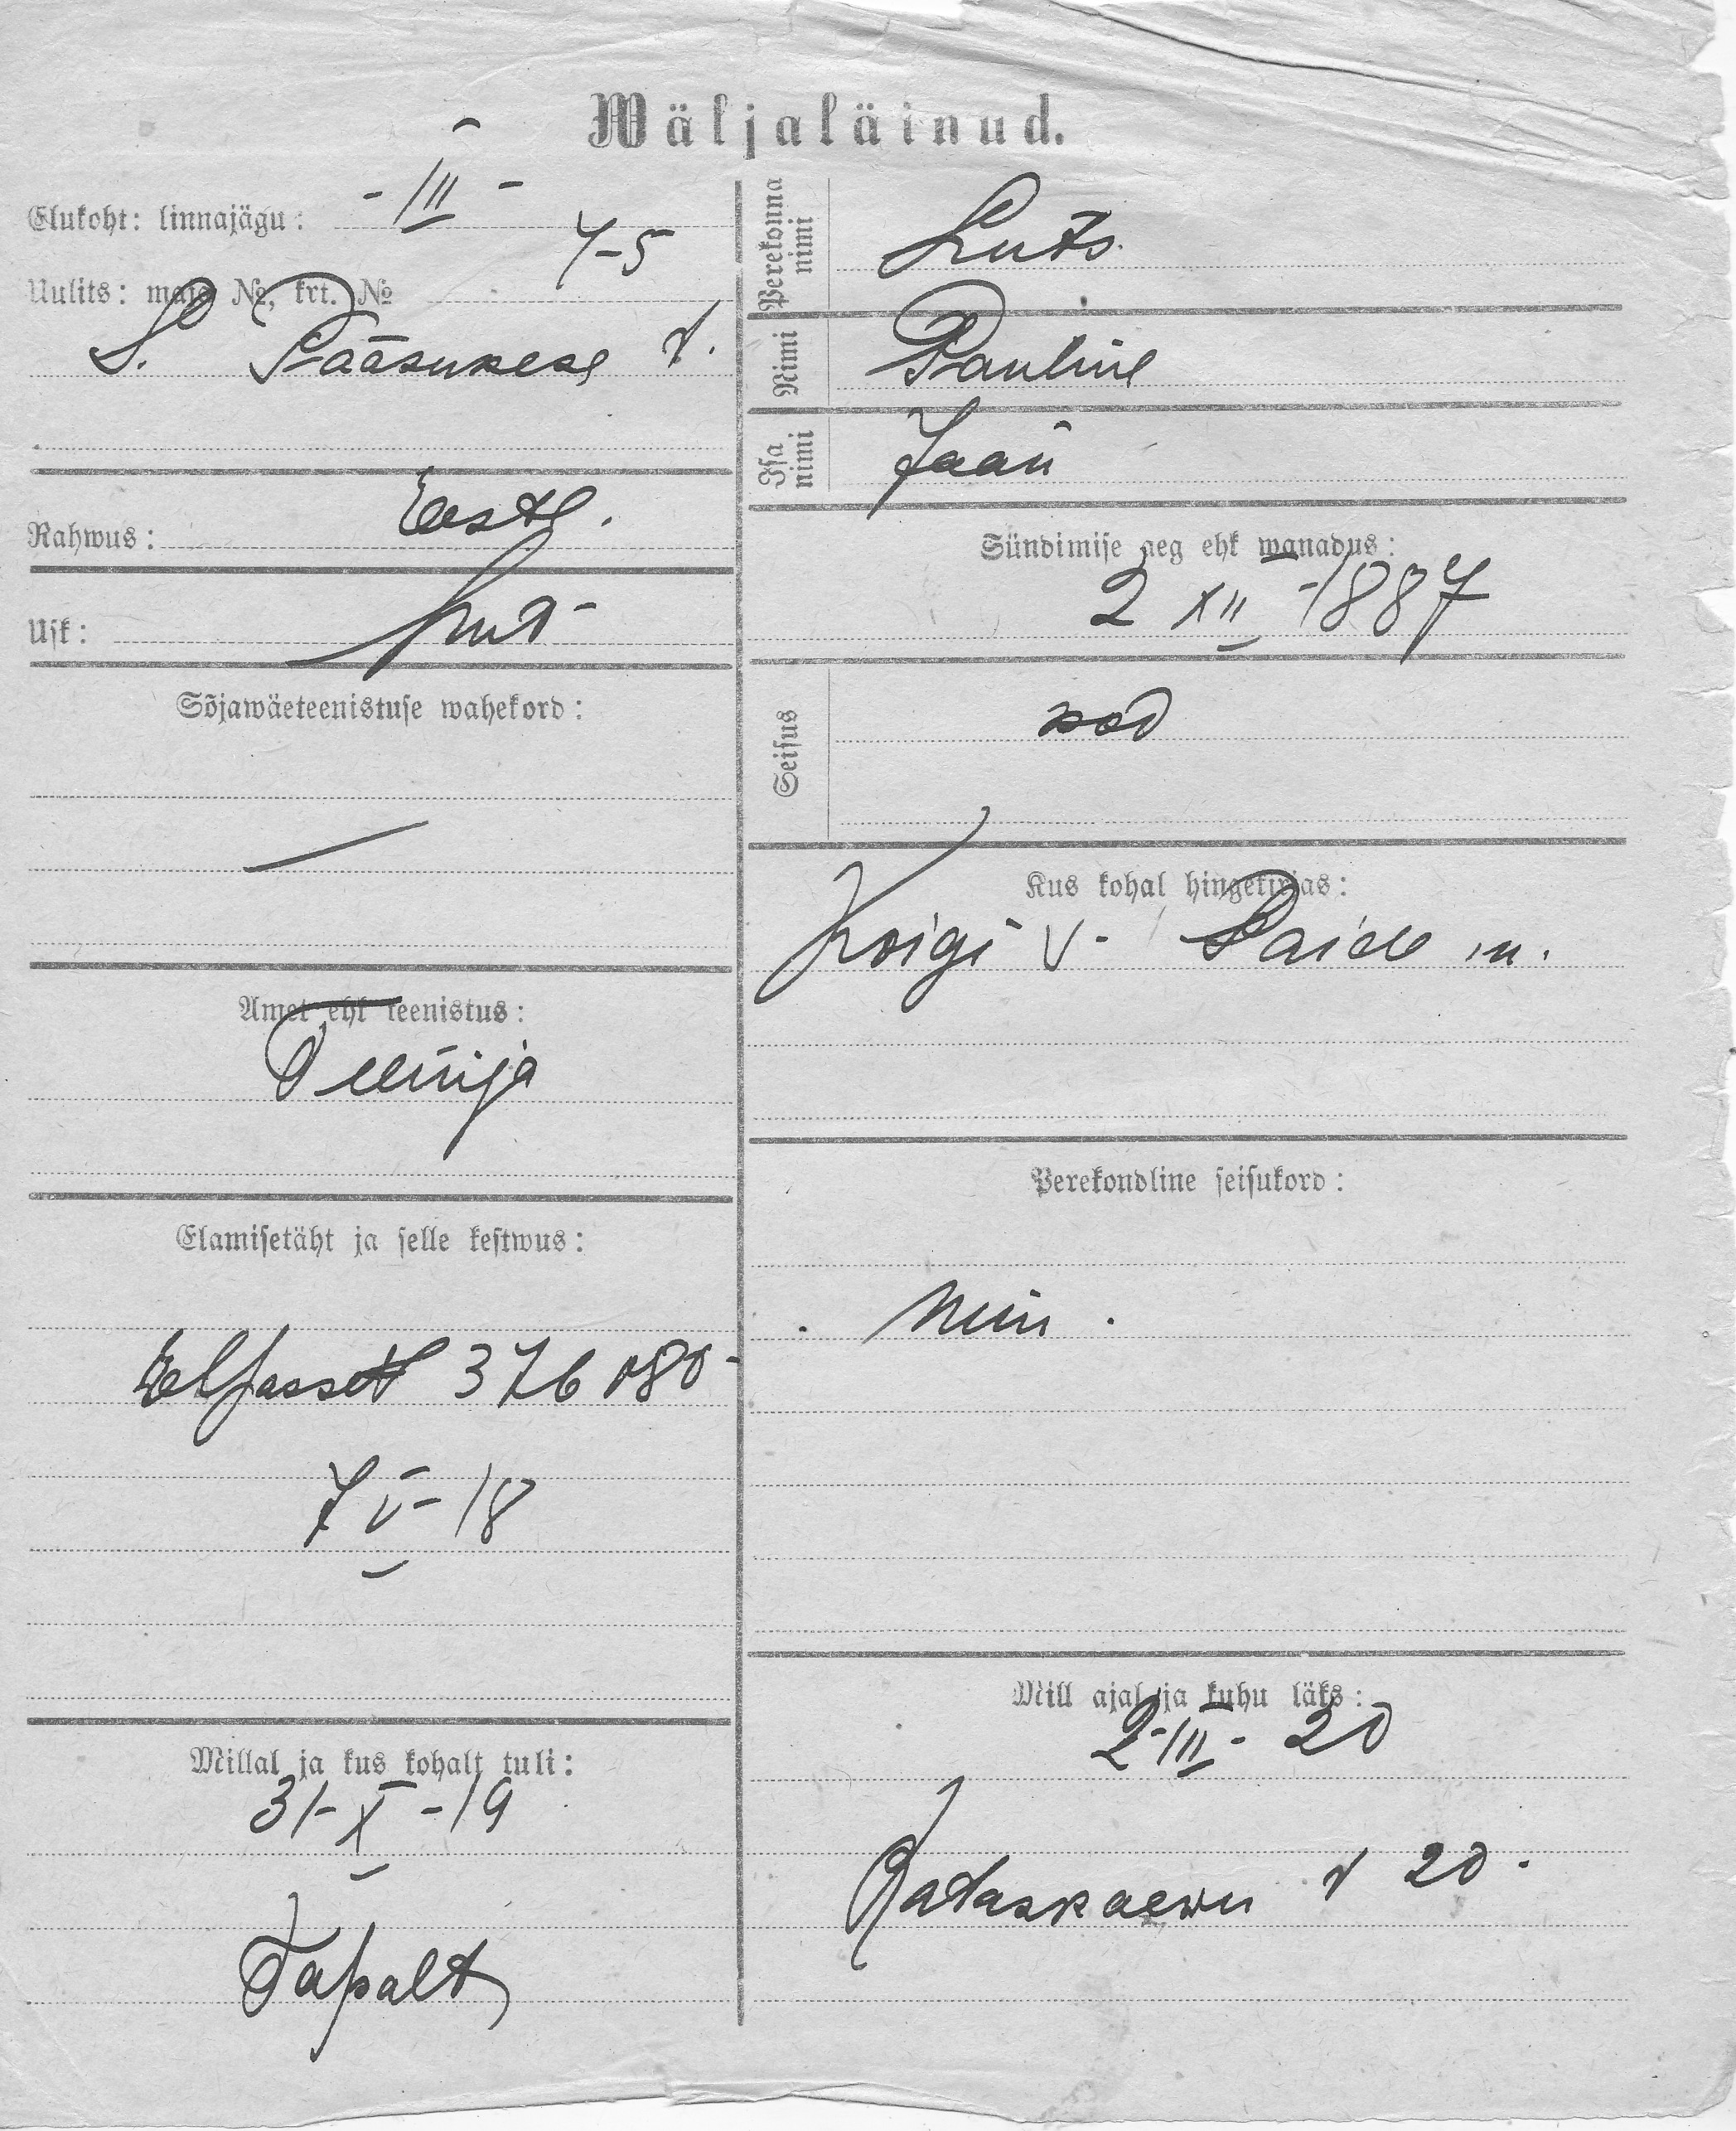 Wäljaläinud.
Elukoht: linnajägu: - III -
Uulits: maja №, krt. № 7-5
S. Pääsukese t.
Rahwus: Eestl.
Usk: Lut-
Sõjawäeteenistuse wahekord:
—
Amet ehk teenistus:
Teenija
Elamisetäht ja selle kestwus:
376080-
7 V - 18
Millal ja kus kohalt tuli:
31-X-19
Tapalt
Perekonna nimi Luts.
Nimi Pauline
Isa nimi Jaan
Sündimise aeg ehk wanadus:
2 XII - 1887
Seisus
Kus kohal hingekirjas:
Koigi v. Paide m.
Perekondline seisukord:
Mill ajal ja kuhu läks:
2-III- 20
Rataskaewu t 20.